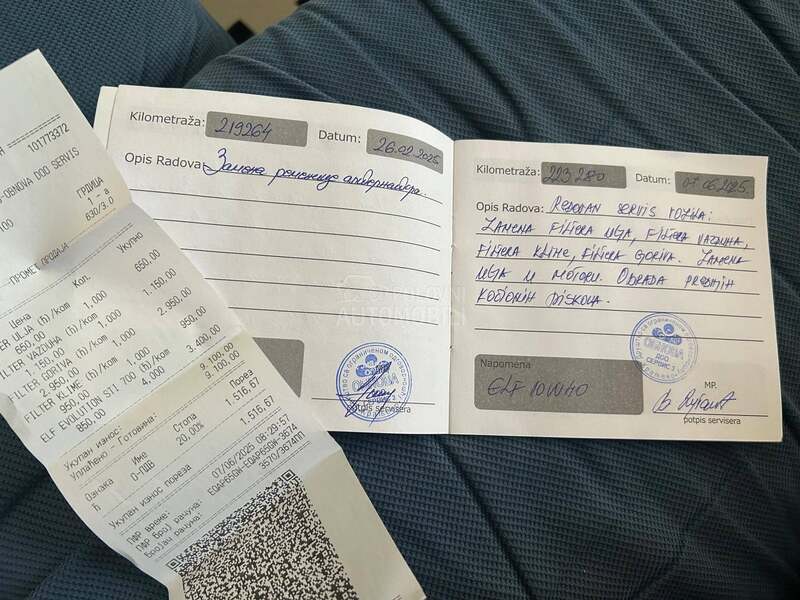 101773372
OBNOVA DOO SERVIS
ГРДИЦА
1 - a
630/3.0
ПРОМЕТ ПРОДАЈА
Цена Кол. Укупно
ER ULJA (h)/kom
650,00 1,000 650,00
FILTER VAZDUHA (h)/kom
1.150,00 1,000 1.150,00
FILTER GORIVA (h)/kom
2.950,00 1,000 2.950,00
FILTER KLIME (h)/kom
950,00 1,000 950,00
ELF EVOLUTION STI 700 (h)/kom
850,00 4,000 3.400,00
Укупан износ: 9.100,00
Уплаћено Готовина: 9.100,00
Ознака Име Стопа Порез
Ђ О-ПДВ 20,00% 1.516,67
Укупан износ пореза 1.516,67
ПФР време: 07/06/2025 08:29:57
ПФР број рачуна: EQAP65GW-EQAP65GW-3674
Бројач рачуна: 3570/3674ПП
Kilometraža: 219264 Datum: 26.02.2025
Opis Radova: Замена ременице алтернатера.
potpis servisera
Kilometraža: 223280 Datum: 07.06.2025.
Opis Radova: REDOVAN SERVIS VOZILA:
ZAMENA FILTERA ULJA, FILTERA VAZDUHA,
FILTERA KLIME, FILTERA GORIVA. ZAMENA
ULJA U MOTORU. OBRADA PREDNJIH
KOČIONIH DISKOVA.
OBNOVA
ДОО
СЕРВИС 1
Napomena
ELF 10W40
MP.
potpis servisera